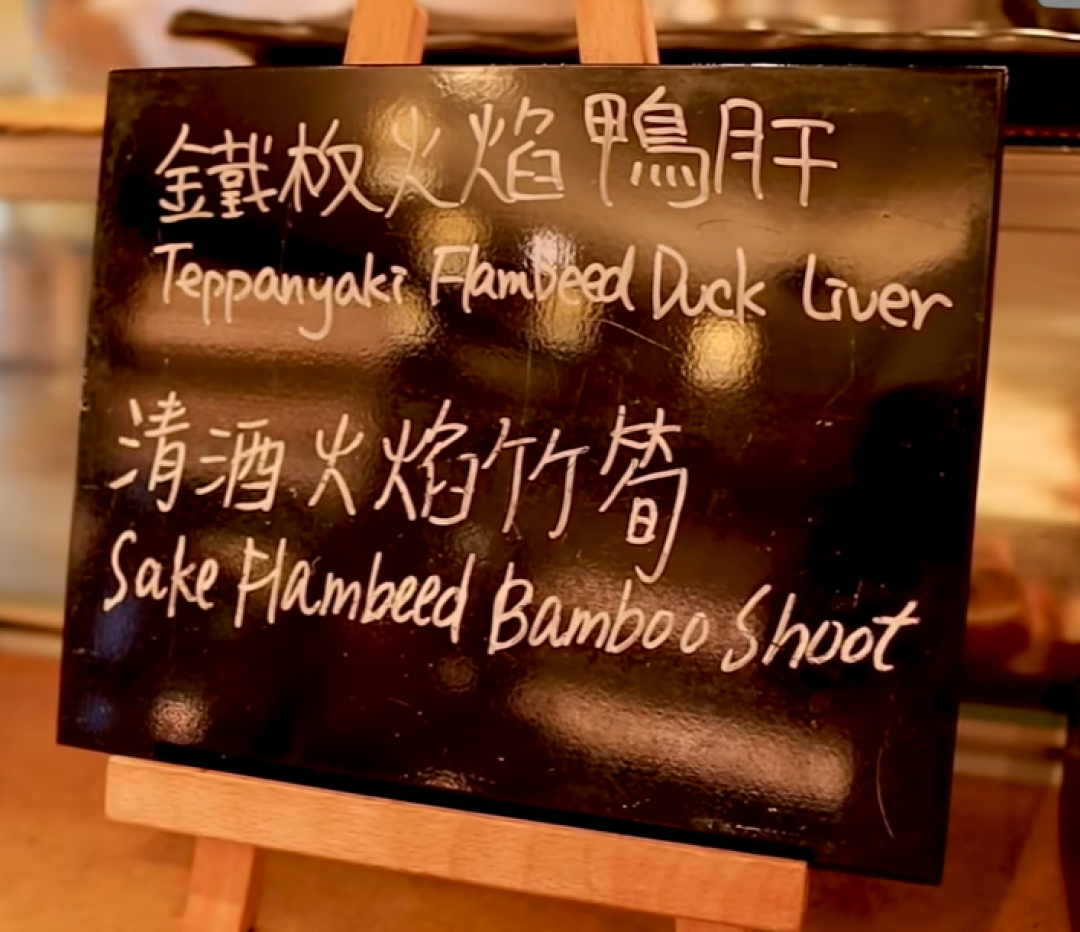 鐵板火焰鴨肝
Teppanyaki Flambeed Duck Liver
清酒火焰竹筍
Sake Flambeed Bamboo Shoot